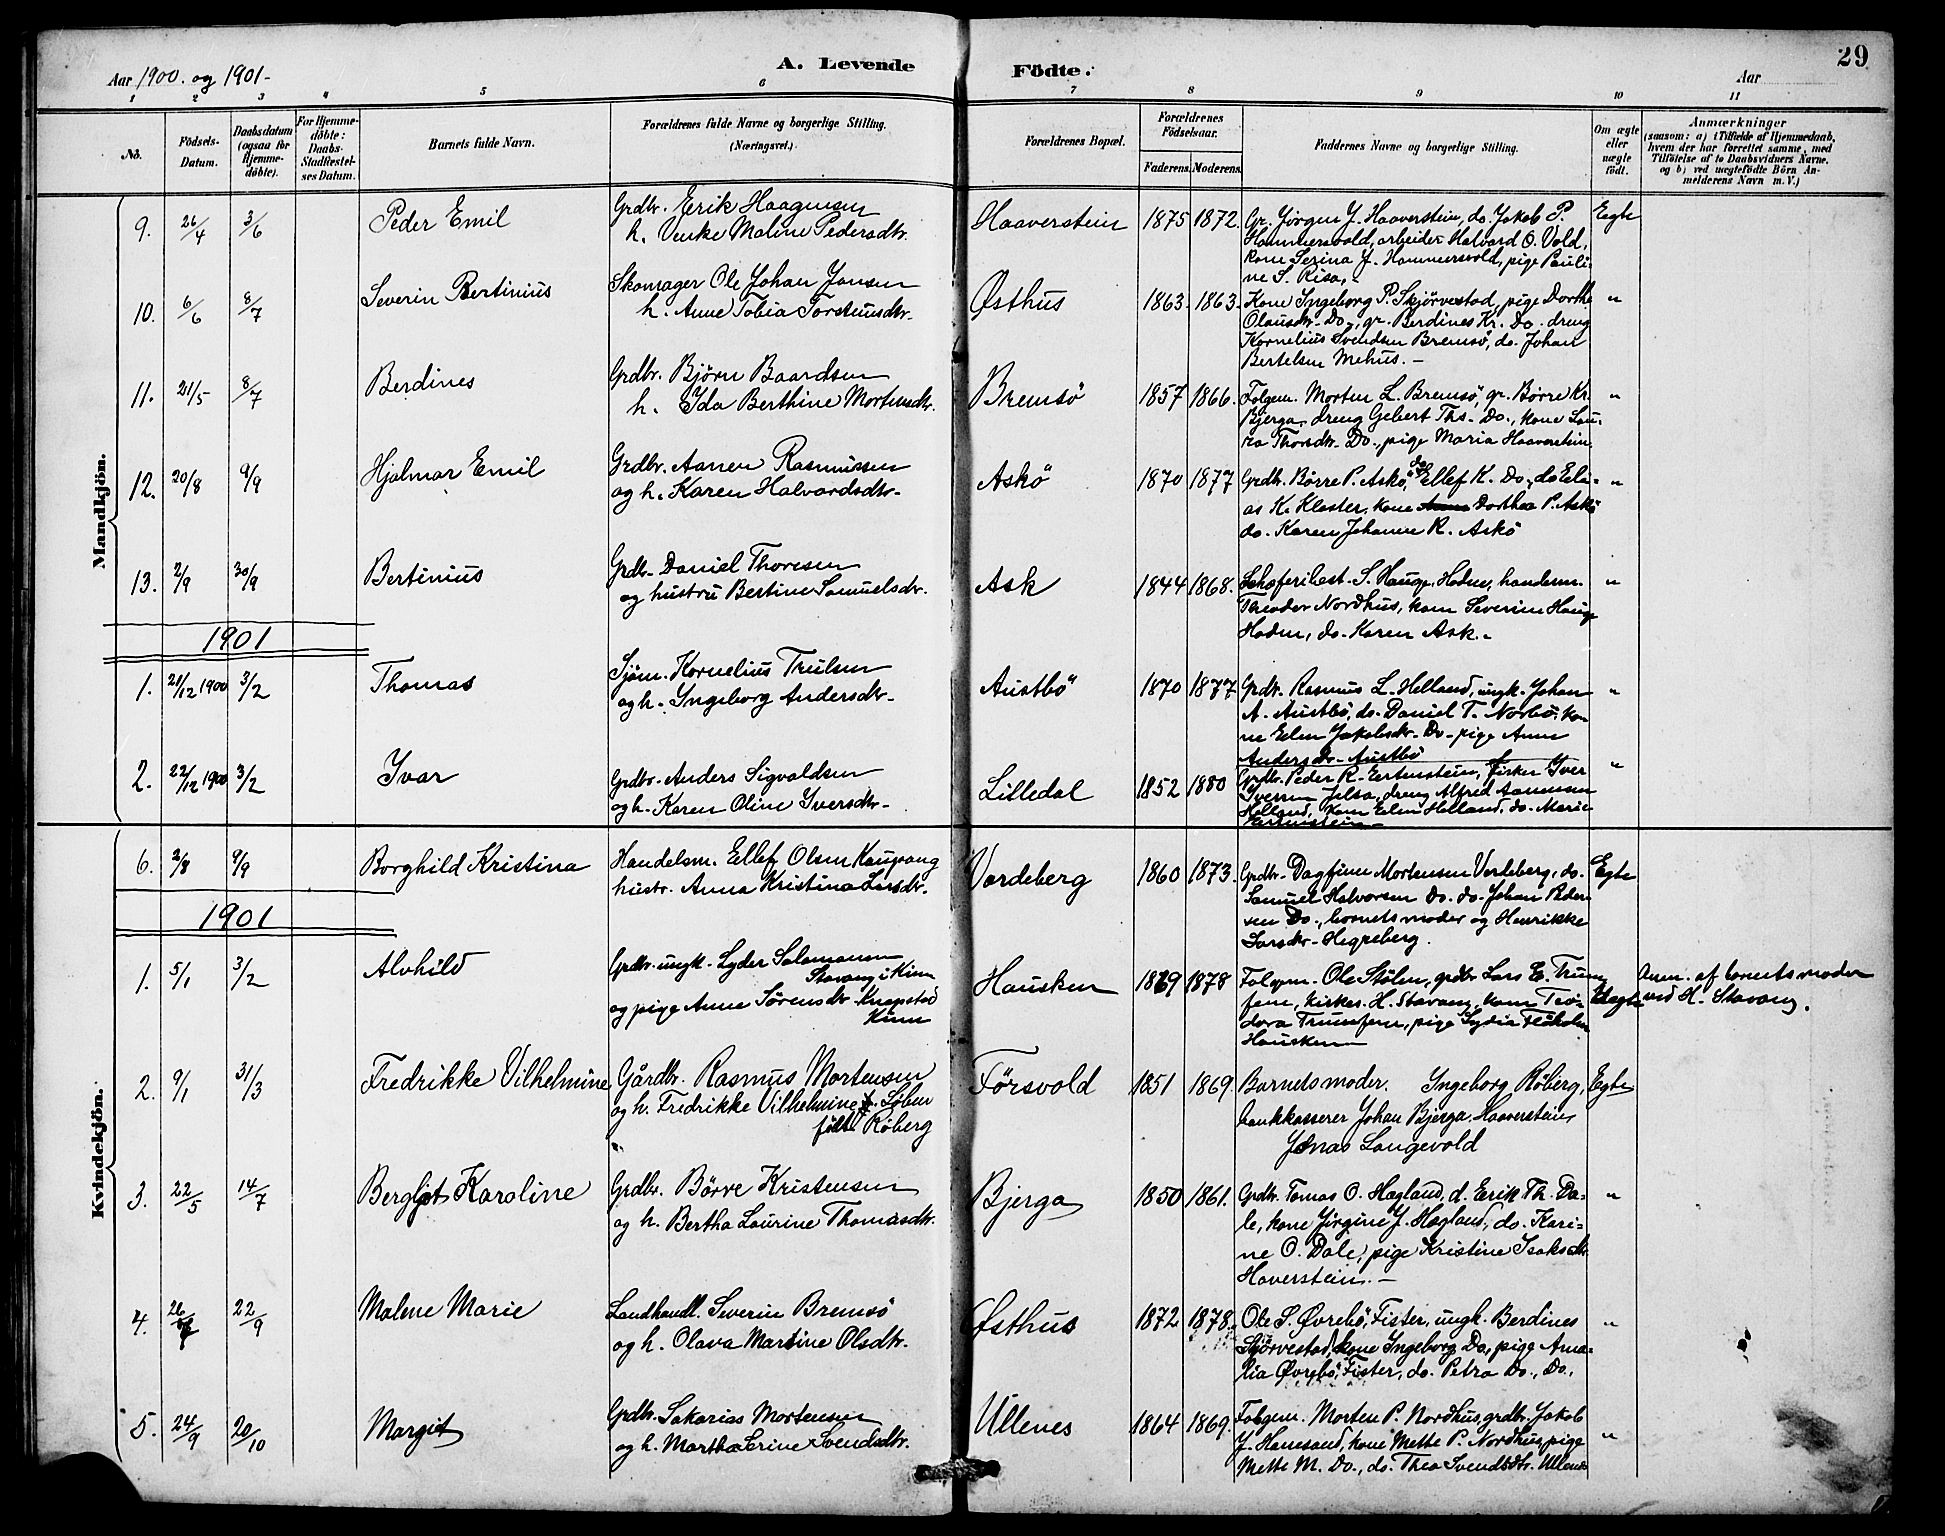 Aar 1900. og 1901-
A. Levende Födte.
29
Aar
1 2 3 4 5 6 7 8 9 10 11
No.
Födsels-Datum.
Daabsdatum (ogsaa for Hjemme-döbte).
For Hjemme-döbte: Daabs-Stadfæstel-ses Datum.
Barnets fulde Navn.
Forældrenes fulde Navne og borgerlige Stilling.
(Næringsvei.)
Forældrenes Bopæl.
Forældrenes Födselsaar.
Faderens. Moderens.
Faddernes Navne og borgerlige Stilling.
Om ægte eller uægte födt.
Anmærkninger
(saasom: a) i Tilfælde af Hjemmedaab,
hvem der har forrettet samme, med
Tilföielse af to Daabsvidners Navne.
og b) ved uægtefödte Börn An-
melderens Navn m. V.)
Mandkjön.
9. 26/4 3/6 Peder Emil
Grdbr. Erik Haagensen
h. Venke Maline Pedersdtr.
Haaverstein 1875 1872.
Gr. Jörgen J. Haaverstein, do. Jakob P.
Hammersvold, arbeider Halvard O. Vold,
kone Serina J. Hammersvold, pige Pauli-
ne S. Risa,-
Egte
10. 6/6 8/7 Severin Bertinius
Skomager Ole Johan Jonsen
h. Anne Tobia Torstensdtr.
Østhus 1863. 1863.
Kone Ingeborg P. Skjörvestad, pige Dorthe
Olausdtr. Do., gr. Berdines Kr. Do. dreng
Kornelius Svendsen Bremsö, do. Johan
Bertelsen Mehus.-
"
11. 21/5 8/7 Berdines
Grdbr. Björn Baardsen
h. Ida Berthine Mortensdtr.
Bremsö 1857 1866.
Folgem. Morten L. Bremsö, gr. Börre Kr.
Bjerga, dreng Gebert Ths- Do., kone Lau-
ra Thorsdtr. Do., pige Maria Haaverstein.
"
12. 20/8 9/9 Hjalmar Emil
Grdbr. Aanen Rasmussen
og h. Karen Halvardsdtr-
Askö 1870 1877
Grdbr. Börre P. Askö, do Ellef K. Do., do Eli-
as K. Kloster, kone Anna Dorthea P. Askö
do. Karen Johanne R. Askö
"
13. 2/9 30/9 Bertinius
Grdbr- Daniel Thoresen
og hustru Bertine Samuelsdtr.
Ask 1844 1868.
S. Hauge, Hodne, handelsm.
Theodor Nordhus, kone Severine Hauge
Hodne, do. Karen Ask.-
"
1901
1. 21/12 1900 3/2 Thomas
Sjöm. Kornelius Trulsen
og h. Ingeborg Andersdtr-
Austbö 1870 1877
Grdbr. Rasmus L. Helland, ungk. Johan
A. Austbö, do. Daniel T. Norbö, ko-
ne Elen Jakobsdtr- Do- pige Anne
Andersdtr- Austbö
"
2. 22/12 1900 3/2 Ivar
Grdbr. Anders Sigvaldsen
og h. Karen Oline Iversdtr-
Lilledal 1852 1880
Grdbr. Peder R. Ertenstein, fisker Iver
Iversen Jelsa, dreng Alfred Aanensen
Helland, kone Elen Helland, do. Marie
Ertenstein-
"
Kvindekjön.
6. 2/8 9/9 Borghild Kristina
Handelsm. Ellef Olsen Kaupang
hustr. Anna Kristina Larsdtr-
Vardeberg 1860 1873.
Grdbr- Dagfinn Mortensen Verdeberg, do.
Samuel Halvorsen Do. do. Johan Peder-
sen Do., barnets moder og Henrikke
Larsdtr- Hegreberg.
Egte
1901
1. 5/1 3/2 Alvhild
Grdbr. ungk. Lyder Salomonsen
Stavang i Kinn
og pige Anne Sörensdtr. Knapstad
Kinn
Hausken 1869 1878
Folgem. Ole Stölen, grdbr Lars E. Trum-
fem, kirkes. H. Stavang, kone Teo-
dora Trumfem, pige Lydia
Hausken
Uægte
Anm. af barnets moder
ved H. Stavang.
2. 9/1 31/3 Fredrikke Vilhelmine
Gårdbr. Rasmus Mortensen
og h. Fredrikke Vilhelmine Löben
født Röberg
Försvold 1851 1869.
Barnets moder. Ingeborg Röberg,
bankkasserer Johan Bjerga, Haaverstein,
Jonas Langevold
Egte
3. 22/5 14/7 Bergljot Karoline
Grdbr. Börre Kristensen
og h. Bertha Laurine Thomasdtr.
Bjerga 1850 1861.
Grdbr. Tomas O. Hagland, d. Eerik Th. Da-
le, kone Jörgine J. Hagland, do. Kari-
ne O. Dale, pige Kristine Isaksdtr.
Haverstein.-
"
4. 26/7 22/9 Malene Marie
Landhandl. Severin Bremsö
og h. Olava Martine Olsdtr.
Østhus 1872 1878.
Ole S. Øvrebö, Fister, ungk. Berdines
Skjörvestad, kone Ingeborg Do, pige Ama-
lia Øvrebö, Fister, do. Petra Do., Do.
"
5. 24/9 20/10 Margit
Grdbr. Sakarias Mortensen
og h. Martha Serine Svendsdtr.
Ullenes 1864 1869.
Folgem. Morten P. Nordhus, grdbr. Jakob
J. Hanesand, kone Mette P. Nordhus, pige
Mette M. Do., do. Thea Svendsdtr. Ullenes
"